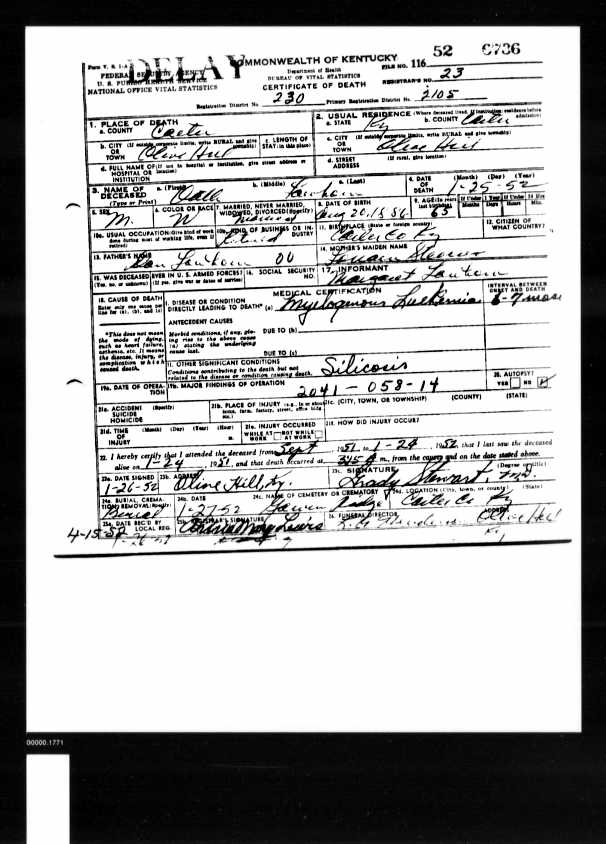 52 6736
Form V. S. 1-A DELAY COMMONWEALTH OF KENTUCKY FILE NO. 116
FEDERAL SECURITY AGENCY Department of Health
U. S. PUBLIC HEALTH SERVICE BUREAU OF VITAL STATISTICS REGISTRAR'S NO. 23
NATIONAL OFFICE VITAL STATISTICS CERTIFICATE OF DEATH
Registration District No. 230 Primary Registration District No. 2105
1. PLACE OF DEATH 2. USUAL RESIDENCE (Where deceased lived. If institution: residence before admission)
a. COUNTY Carter a. STATE Ky b. COUNTY Carter
b. CITY (If outside corporate limits, write RURAL and give township) OR TOWN Olive Hill c. LENGTH OF STAY (in this place) c. CITY (If outside corporate limits, write RURAL and give township) OR TOWN Olive Hill
d. FULL NAME OF (If not in hospital or institution, give street address or location) HOSPITAL OR INSTITUTION d. STREET ADDRESS (If rural, give location)
3. NAME OF DECEASED (Type or Print) a. (First) b. (Middle) c. (Last) 4. DATE OF DEATH (Month) (Day) (Year) 1-25-52
5. SEX M. 6. COLOR OR RACE W 7. MARRIED, NEVER MARRIED, WIDOWED, DIVORCED (Specify) 8. DATE OF BIRTH Aug 20, 1886 9. AGE (In years last birthday) 65 If Under 1 Year Months Days If Under 24 Hrs Hours Min.
10a. USUAL OCCUPATION (Give kind of work done during most of working life, even if retired) 10b. KIND OF BUSINESS OR INDUSTRY 11. BIRTHPLACE (State or foreign country) Carter Co Ky 12. CITIZEN OF WHAT COUNTRY?
13. FATHER'S NAME 14. MOTHER'S MAIDEN NAME
15. WAS DECEASED EVER IN U. S. ARMED FORCES? (Yes, no, or unknown) (If yes, give war or dates of service) 16. SOCIAL SECURITY NO. 17. INFORMANT Margaret
18. CAUSE OF DEATH Enter only one cause per line for (a), (b), and (c) MEDICAL CERTIFICATION INTERVAL BETWEEN ONSET AND DEATH
I. DISEASE OR CONDITION DIRECTLY LEADING TO DEATH* (a) Myelogenous Leukemia 6-7 mos
*This does not mean the mode of dying, such as heart failure, asthenia, etc. It means the disease, injury, or complication which caused death. ANTECEDENT CAUSES
Morbid conditions, if any, giving rise to the above cause (a) stating the underlying cause last. DUE TO (b)
DUE TO (c)
II. OTHER SIGNIFICANT CONDITIONS Conditions contributing to the death but not related to the disease or condition causing death. Silicosis
19a. DATE OF OPERATION 19b. MAJOR FINDINGS OF OPERATION 2041-058-14 20. AUTOPSY? YES NO
21a. ACCIDENT SUICIDE HOMICIDE (Specify) 21b. PLACE OF INJURY (e.g., in or about home, farm, factory, street, office bldg., etc.) 21c. (CITY, TOWN, OR TOWNSHIP) (COUNTY) (STATE)
21d. TIME OF INJURY (Month) (Day) (Year) (Hour) m. 21e. INJURY OCCURRED WHILE AT WORK NOT WHILE AT WORK 21f. HOW DID INJURY OCCUR?
22. I hereby certify that I attended the deceased from Sept, 1951, to 1-24, 1952, that I last saw the deceased
alive on 1-24, 1951, and that death occurred at 3:45 A m., from the causes and on the date stated above.
23a. DATE SIGNED 1-26-52 23b. ADDRESS Olive Hill, Ky. 23c. SIGNATURE Grady Stewart (Degree or title)
24a. BURIAL, CREMATION, REMOVAL (Specify) Burial 24b. DATE 1-27-52 24c. NAME OF CEMETERY OR CREMATORY 24d. LOCATION (City, town, or county) (State) Carter Co Ky
25a. DATE REC'D BY LOCAL REG. 4-15-52 25b. REGISTRAR'S SIGNATURE 26. FUNERAL DIRECTOR ADDRESS Olive Hill
Ky
00000.1771